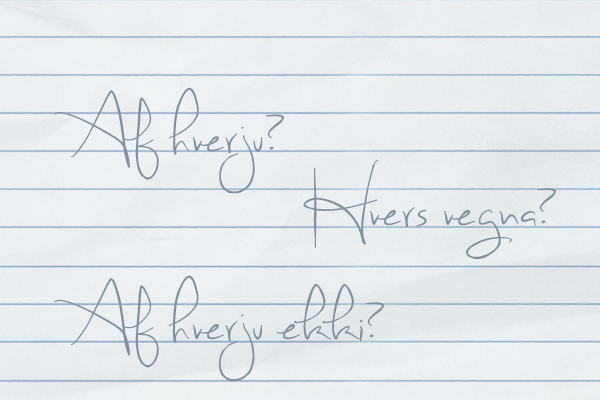 Af hverju?
Hvers vegna?
Af hverju ekki?